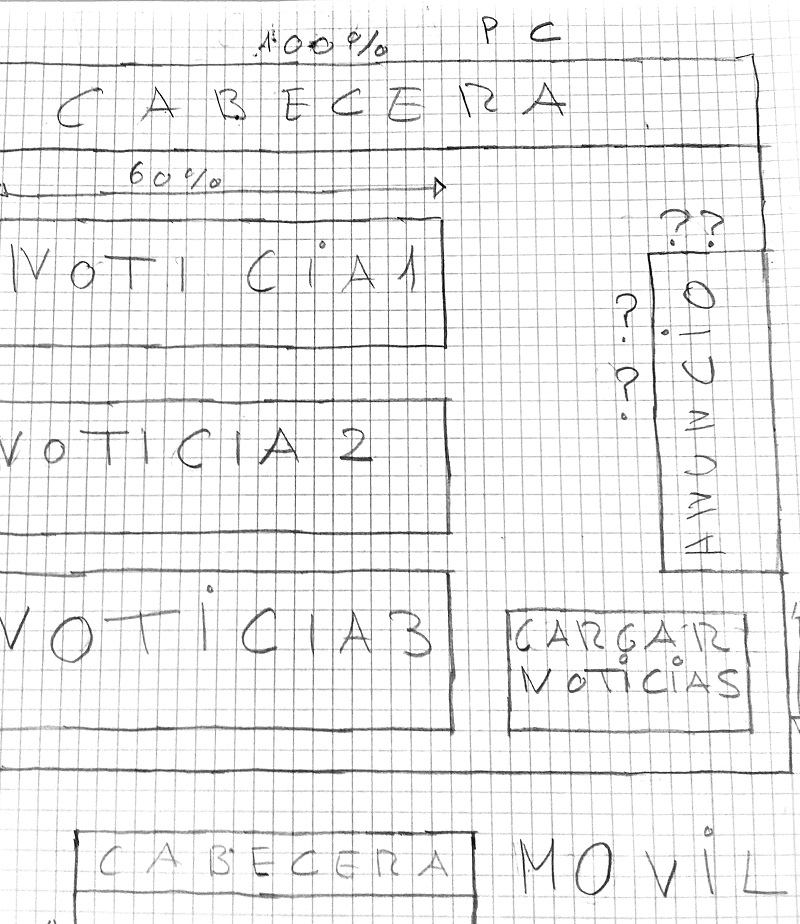 100% PC
CABECERA
60%
??
NOTICIA1
??
ANUNCIO
NOTICIA 2
NOTICIA3
CARGAR
NOTICIAS
CABECERA
MOVIL